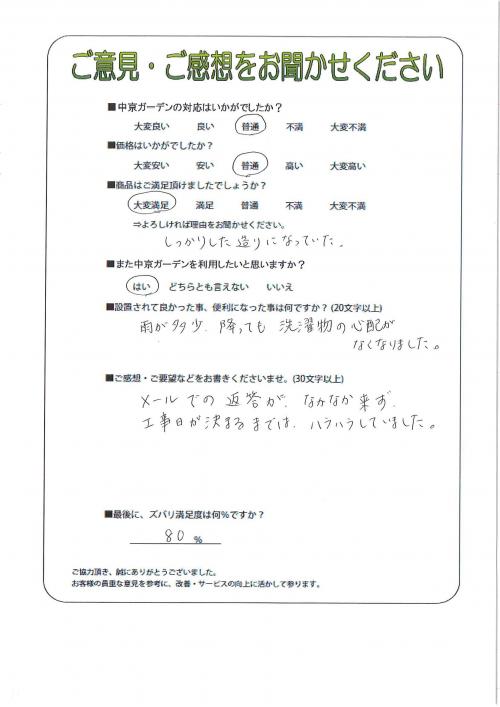 ご意見・ご感想をお聞かせください
■中京ガーデンの対応はいかがでしたか？
大変良い 良い 普通 不満 大変不満
■価格はいかがでしたか？
大変安い 安い 普通 高い 大変高い
■商品はご満足頂けましたでしょうか？
大変満足 満足 普通 不満 大変不満
⇒よろしければ理由をお聞かせください。
しっかりした造りになっていた。
■また中京ガーデンを利用したいと思いますか？
はい どちらとも言えない いいえ
■設置されて良かった事、便利になった事は何ですか？(20文字以上)
雨が多少、降っても 洗濯物の心配が
なくなりました。
■ご感想・ご要望などをお書きくださいませ。(30文字以上)
メールでの返答が、なかなか来ず、
工事日が決まるまでは、ハラハラしていました。
■最後に、ズバリ満足度は何％ですか？
80 %
ご協力頂き、誠にありがとうございました。
お客様の貴重な意見を参考に、改善・サービスの向上に活かして参ります。